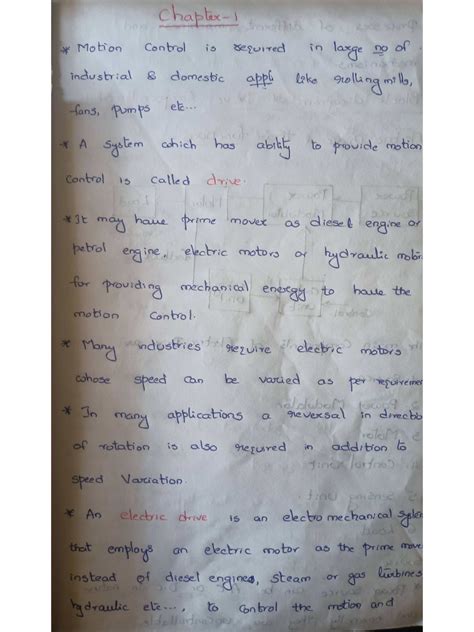 Chapter-1
* Motion Control is required in large no of
industrial & domestic appli like rolling mills,
fans, pumps etc...
* A system which has ability to provide motion
Control is called drive.
* It may have prime mover as diesel engine or
petrol engine, electric motors or hydraulic motors
for providing mechanical energy to have the
motion control.
* Many industries require electric motors
whose speed can be varied as per requiremen
* In many applications a reversal in directio
of rotation is also required in addition to
speed Variation.
* An electric drive is an electro mechanical system
that employs an electric motor as the prime move
instead of diesel engines, steam or gas turbines
hydraulic etc..., to control the motion and